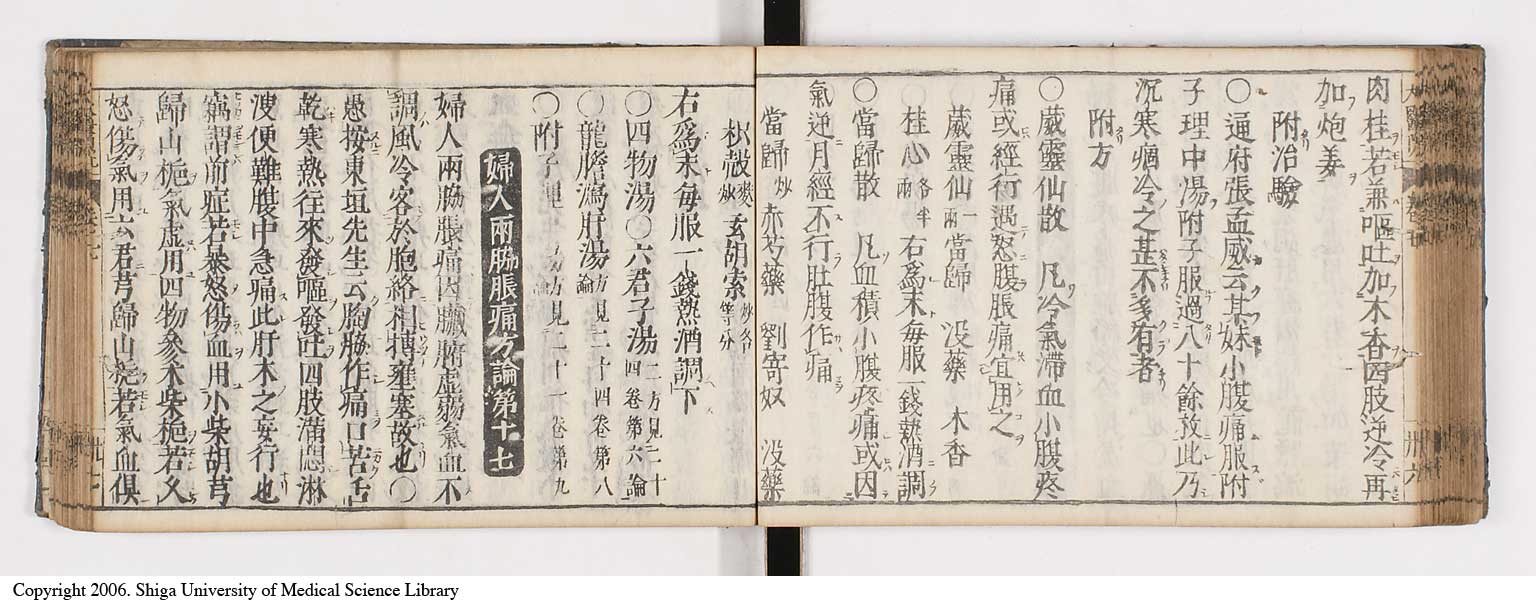 肉桂若兼嘔吐加木香四肢逆冷再
加炮姜
附治驗
○通府張孟威云其妹小腹痛服附
子理中湯附子服過八十餘枚此乃
沉寒痼冷之甚不多有者
附方
○葳靈仙散 凡冷氣滯血小腹疼
痛或經行遇怒腹脹痛宜用之
葳靈仙一兩當歸 没藥 木香
桂心各半兩 右爲末毎服一錢熱酒調
○當歸散 凡血積小腹疼痛或因
氣逆月經不行肚腹作痛
當歸炒 赤芍藥 劉寄奴 没藥
枳殻麥炒 玄胡索炒各等分
右爲末毎服一錢熱酒調下
○四物湯○六君子湯二方見二十四卷第六論
○龍膽瀉肝湯方見二十四卷第八論
○附子理 方見二十一卷第九論
婦人兩脇脹痛方論第十七
婦人兩脇脹痛因臟腑虚弱氣血不
調風冷客於胞絡相搏壅塞故也○
愚按東垣先生云胸脇作痛口苦舌
乾寒熱往來發嘔發吐四肢滿悶淋
溲便難腹中急痛此肝木之妄行也
竊謂前症若暴怒傷血用小柴胡芎
歸山梔氣虚用四物參朮柴梔若久
怒傷氣用六君芎歸山梔若氣血俱
Copyright 2006. Shiga University of Medical Science Library